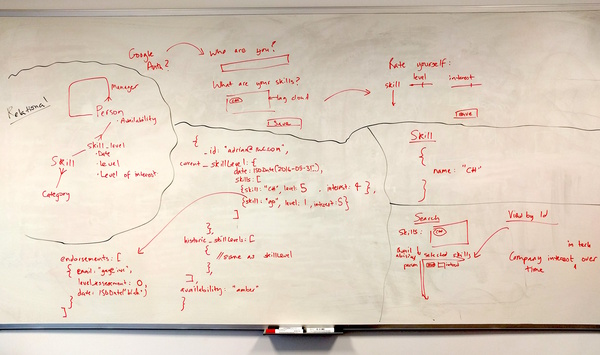 Google
Auth?
Who are you?
What are your skills?
C#
tag cloud
Save
Rate yourself:
skill
level
interest
Save
Relational
Manager
Person
• Availability
Skill_level
• Date
• Level
• Level of interest
Skill
Category
{
_id: "adrian@
current_skillLevel: {
date: ISODate(2016-03-31..)
skills: [
{skill: "C#", level: 5, interest: 4},
{skill: "go", level: 1, interest: 5}
]
},
historic_skillLevels: [
{
//same as skillLevel
},
],
availability: "amber"
}
endorsements: [
{ email:
level_assessment: 0,
date: ISODate("blah")
}
]
Skill
{
name: "C#"
}
Search
Skills:
C#
selected skills
person
View by Id
Company interest over
time